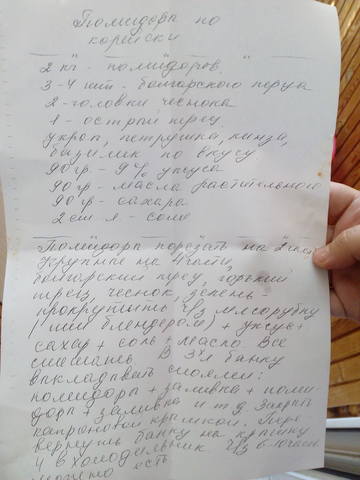 Помидоры по
корейски
2 кг - помидоров
3-4 шт - болгарского перца
2 - головки чеснока
1 - острый перец
укроп, петрушка, кинза,
базилик по вкусу
90 гр - 9% уксуса
90 гр - масла растительного
90 гр - сахара
2 ст л - соли
Помидоры порезать на 2 части
Крупные на 4 части,
болгарский перец, горький
перец, чеснок, зелень -
прокрутить ч/з мясорубку
(или блендером) + уксус +
сахар + соль + масло Все
смешать. В 3 л банку
выкладывать слоями:
помидоры + заливка + поми-
доры + заливка и т д Закрыть
капроновой крышкой. Пере
вернуть банку на крышку
и в холодильник ч/з 8 часов
можно есть